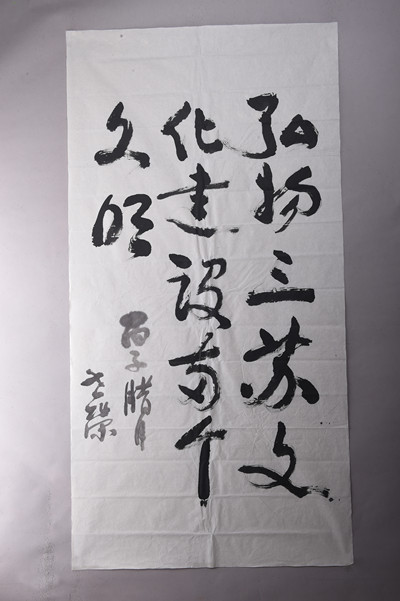 弘扬三苏文
化建设两个
文明
丙子腊月